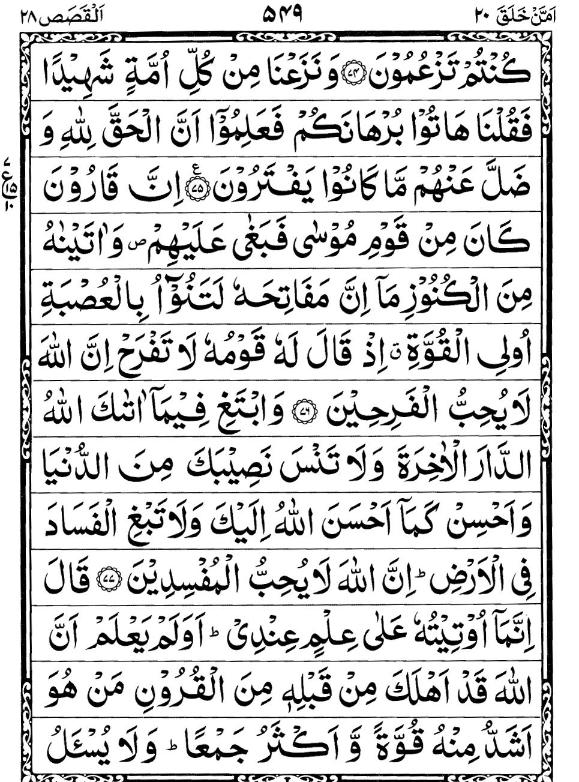 اَمَّنْ خَلَقَ ٢٠ ۵۴۹ اَلْقَصَص ٢٨
كُنْتُمْ تَزْعُمُوْنَ ﴿۷۴﴾ وَ نَزَعْنَا مِنْ كُلِّ اُمَّةٍ شَهِيْدًا
فَقُلْنَا هَاتُوْا بُرْهَانَكُمْ فَعَلِمُوْۤا اَنَّ الْحَقَّ لِلّٰهِ وَ
ضَلَّ عَنْهُمْ مَّا كَانُوْا يَفْتَرُوْنَ ﴿۷۵﴾ ع اِنَّ قَارُوْنَ
كَانَ مِنْ قَوْمِ مُوْسٰى فَبَغٰى عَلَيْهِمْ ص وَ اٰتَيْنٰهُ
مِنَ الْكُنُوْزِ مَاۤ اِنَّ مَفَاتِحَهٗ لَتَنُوْٓاُ بِالْعُصْبَةِ
اُولِى الْقُوَّةِ ق اِذْ قَالَ لَهٗ قَوْمُهٗ لَا تَفْرَحْ اِنَّ اللّٰهَ
لَا يُحِبُّ الْفَرِحِيْنَ ﴿۷۶﴾ وَ ابْتَغِ فِيْمَاۤ اٰتٰىكَ اللّٰهُ
الدَّارَ الْاٰخِرَةَ وَ لَا تَنْسَ نَصِيْبَكَ مِنَ الدُّنْيَا
وَ اَحْسِنْ كَمَاۤ اَحْسَنَ اللّٰهُ اِلَيْكَ وَ لَا تَبْغِ الْفَسَادَ
فِى الْاَرْضِ ؕ اِنَّ اللّٰهَ لَا يُحِبُّ الْمُفْسِدِيْنَ ﴿۷۷﴾ قَالَ
اِنَّمَاۤ اُوْتِيْتُهٗ عَلٰى عِلْمٍ عِنْدِىْ ؕ اَوَلَمْ يَعْلَمْ اَنَّ
اللّٰهَ قَدْ اَهْلَكَ مِنْ قَبْلِهٖ مِنَ الْقُرُوْنِ مَنْ هُوَ
اَشَدُّ مِنْهُ قُوَّةً وَّ اَكْثَرُ جَمْعًا ؕ وَ لَا يُسْـَٔلُ